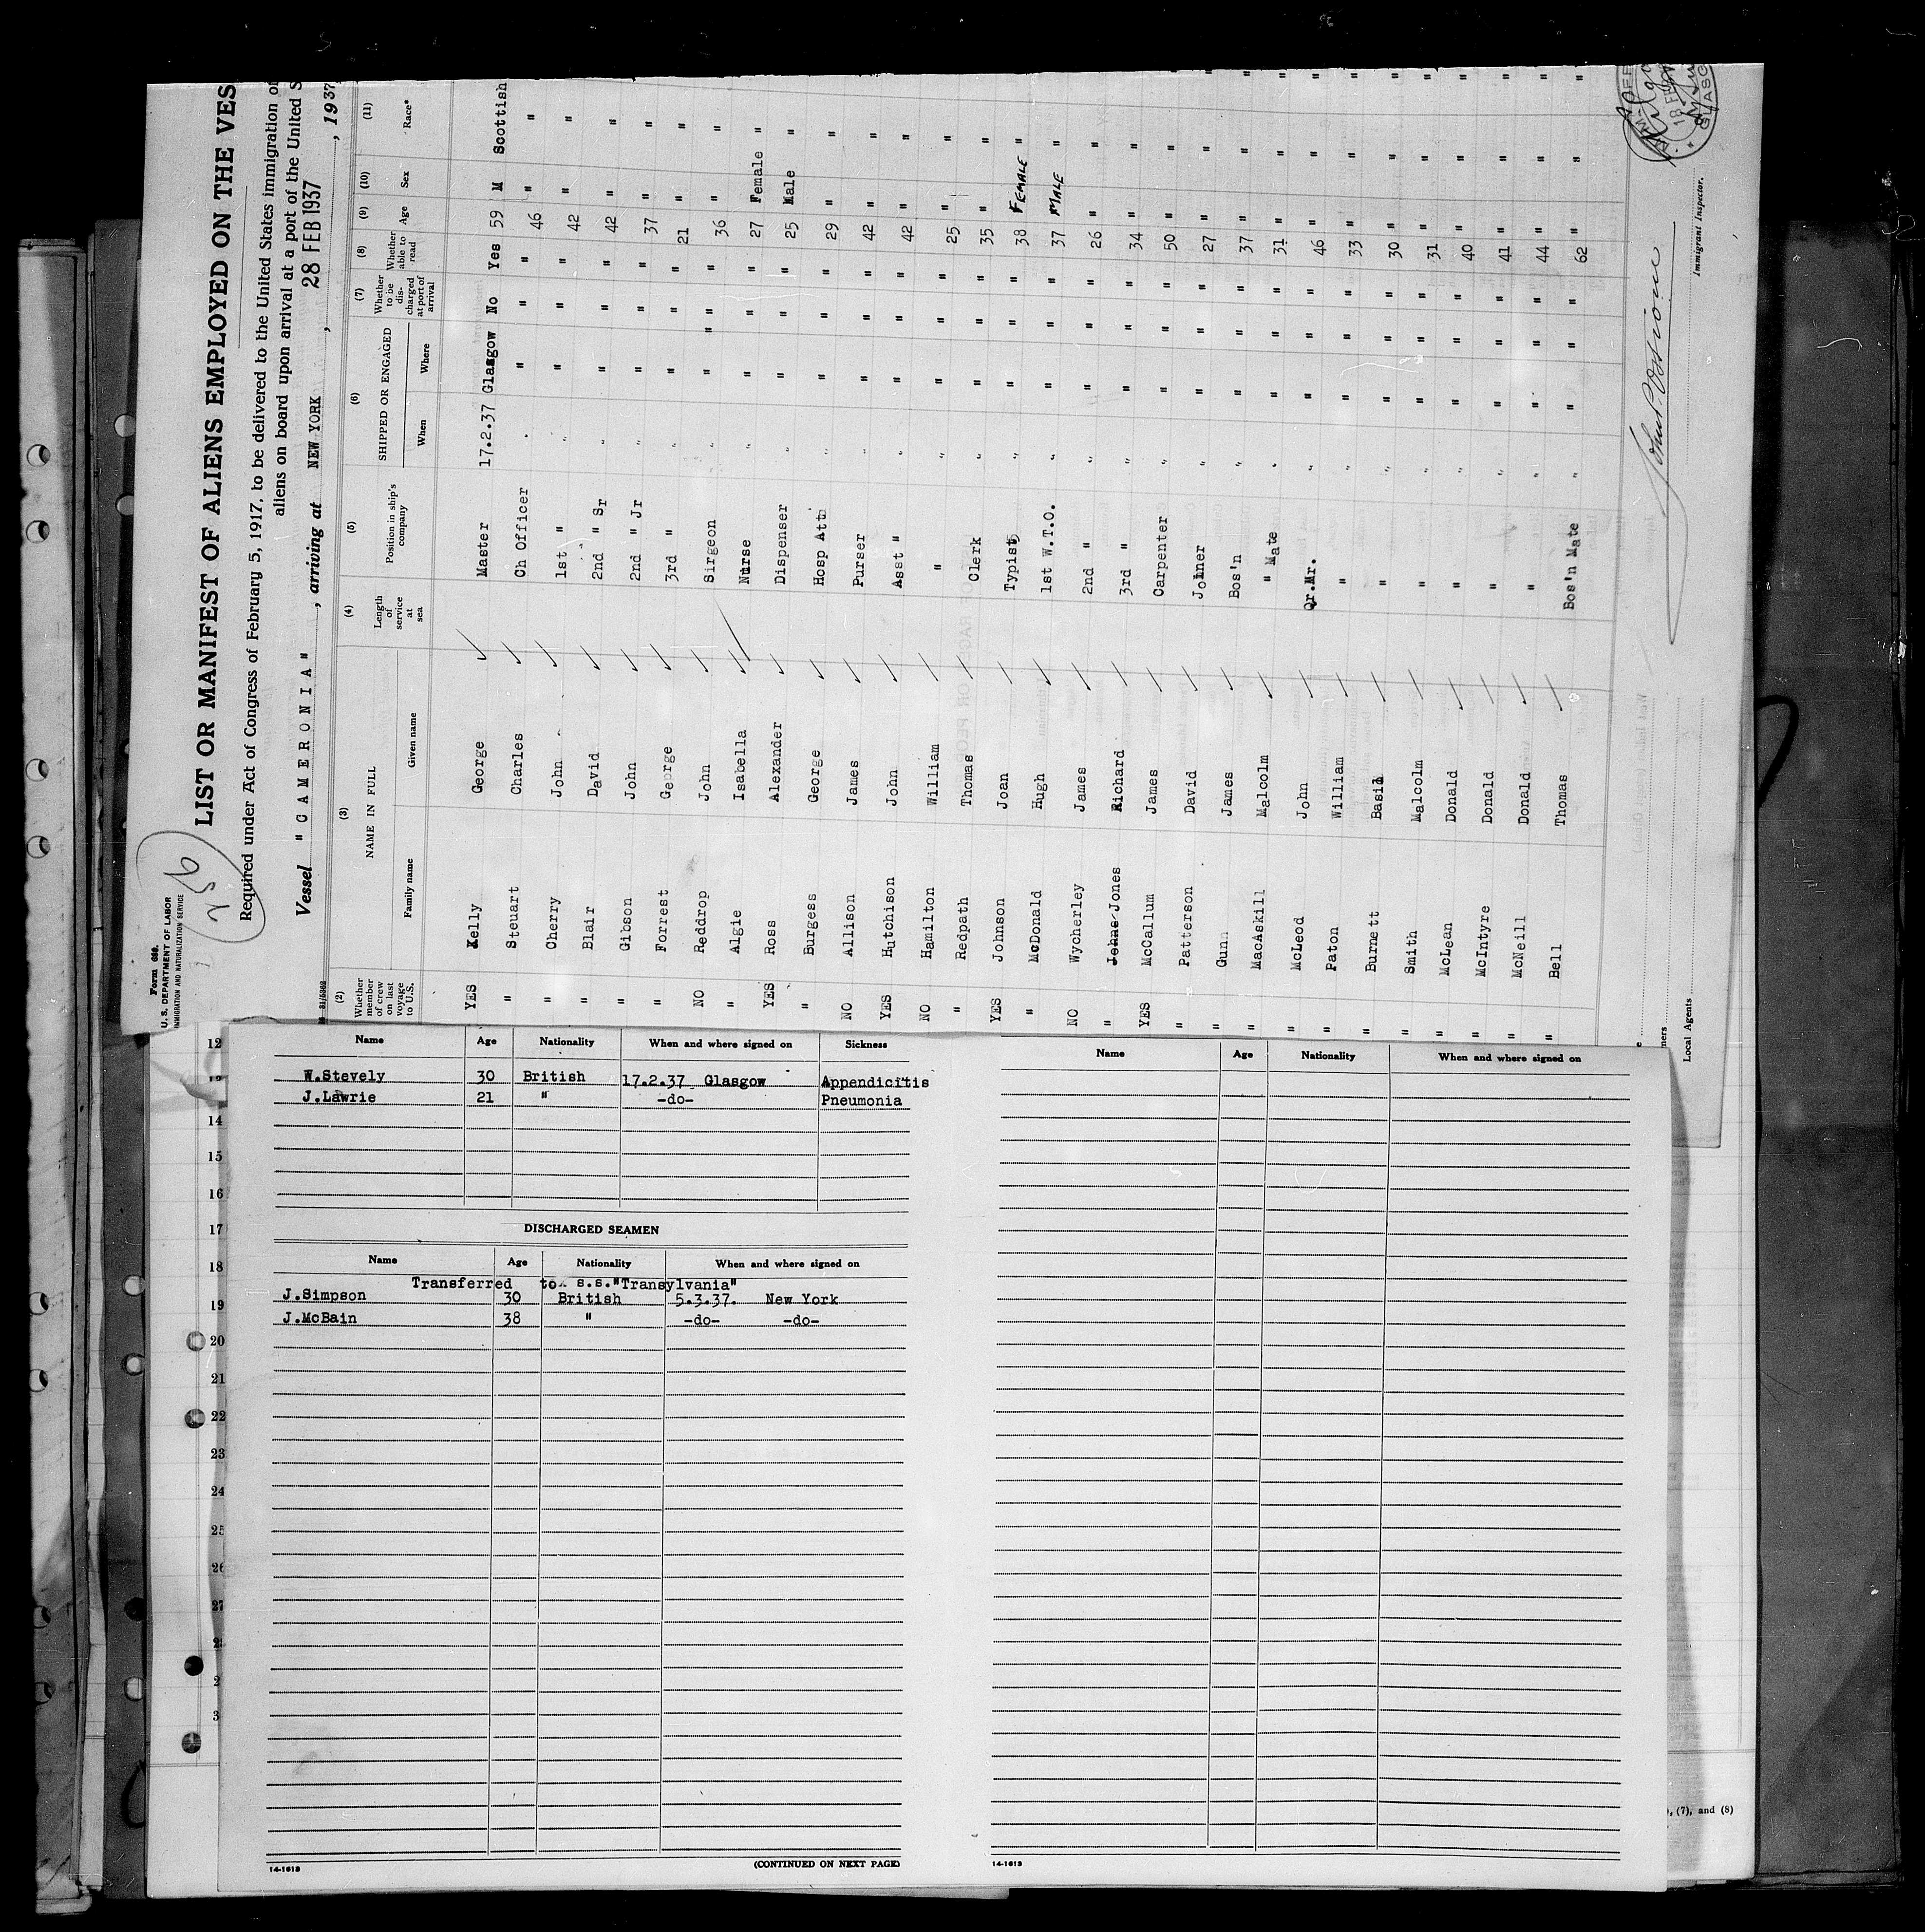 Form 689.
U. S. DEPARTMENT OF LABOR
IMMIGRATION AND NATURALIZATION SERVICE
256
LIST OR MANIFEST OF ALIENS EMPLOYED ON THE VES
Required under Act of Congress of February 5, 1917, to be delivered to the United States immigration
aliens on board upon arrival at a port of the United S
Vessel "CAMERONIA", arriving at NEW YORK, 28 FEB 1937, 1937
(2) (3) (4) (5) (6) (7) (8) (9) (10) (11)
Whether member of crew on last voyage to U.S. NAME IN FULL Family name Given name Length of service at sea Position in ship's company SHIPPED OR ENGAGED When Where Whether to be discharged at port of arrival Whether able to read Age Sex Race*
YES Kelly George Master 17.2.37 Glasgow No Yes 59 M Scottish
" Steuart Charles Ch Officer " " " " 46 " "
" Cherry John 1st " " " " " 42 " "
" Blair David 2nd " Sr " " " " 42 " "
" Gibson John 2nd " Jr " " " " 37 " "
" Forrest George 3rd " " " " " 21 " "
NO Reddrop John Sirgeon " " " " 36 " "
" Algie Isabella Nurse " " " " 27 Female "
YES Ross Alexander Dispenser " " " " 25 Male "
" Burgess George Hosp Att " " " " 29 " "
NO Allison James Purser " " " " 42 " "
YES Hutchison John Asst " " " " " 42 " "
NO Hamilton William " " " " " 25 " "
" Redpath Thomas Clerk " " " " 35 " "
YES Johnson Joan Typist " " " " 38 FEMALE "
" McDonald Hugh 1st W.T.O. " " " " 37 MALE "
NO Wycherley James 2nd " " " " " 26 " "
" Johns Jones Richard 3rd " " " " " 34 " "
YES McCallum James Carpenter " " " " 50 " "
" Patterson David Joiner " " " " 27 " "
" Gunn James Bos'n " " " " 37 " "
" MacAskill Malcolm " Mate " " " " 31 " "
" McLeod John Qr.Mr. " " " " 46 " "
" Paton William " " " " " 33 " "
" Burnett Basil " " " " " 30 " "
" Smith Malcolm " " " " " 31 " "
" McLean Donald " " " " " 40 " "
" McIntyre Donald " " " " " 41 " "
" McNeill Donald " " " " " 44 " "
" Bell Thomas Bos'n Mate " " " " 62 " "
Immigrant Inspector.
Local Agents
GLASG
12
13
14
15
16
17
18
19
20
21
22
23
24
25
26
27
Name Age Nationality When and where signed on Sickness
W.Stevely 30 British 17.2.37 Glasgow Appendicitis
J.Lawrie 21 " -do- Pneumonia
DISCHARGED SEAMEN
Name Age Nationality When and where signed on
Transferred to s.s."Transylvania"
J.Simpson 30 British 5.3.37. New York
J.McBain 38 " -do- -do-
14-1613 (CONTINUED ON NEXT PAGE)
Name Age Nationality When and where signed on
14-1613
, (7), and (8)